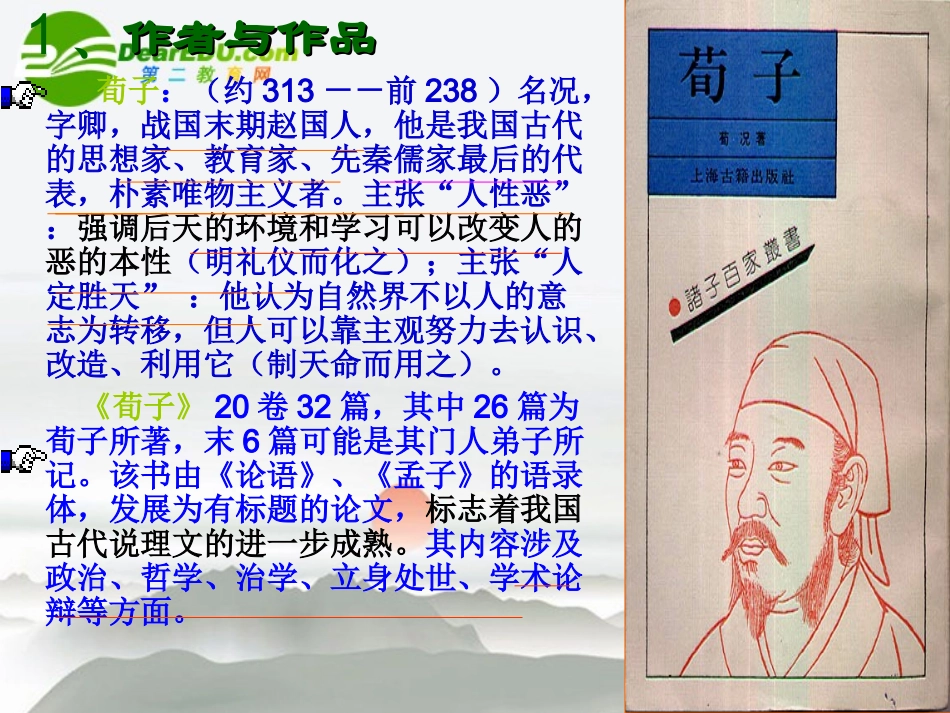 1、作者与作品
DearEDU.com
第二教育网
荀子：（约 313 －－前 238 ）名况，
字卿，战国末期赵国人，他是我国古代
的思想家、教育家、先秦儒家最后的代
表，朴素唯物主义者。主张“人性恶”
：强调后天的环境和学习可以改变人的
恶的本性（明礼仪而化之）；主张“人
定胜天” ：他认为自然界不以人的意
志为转移，但人可以靠主观努力去认识、
改造、利用它（制天命而用之）。
《荀子》 20 卷 32 篇，其中 26 篇为
荀子所著，末 6 篇可能是其门人弟子所
记。该书由《论语》、《孟子》的语录
体，发展为有标题的论文，标志着我国
古代说理文的进一步成熟。其内容涉及
政治、哲学、治学、立身处世、学术论
辩等方面。
荀子
荀况著
上海古籍出版社
諸子百家叢書